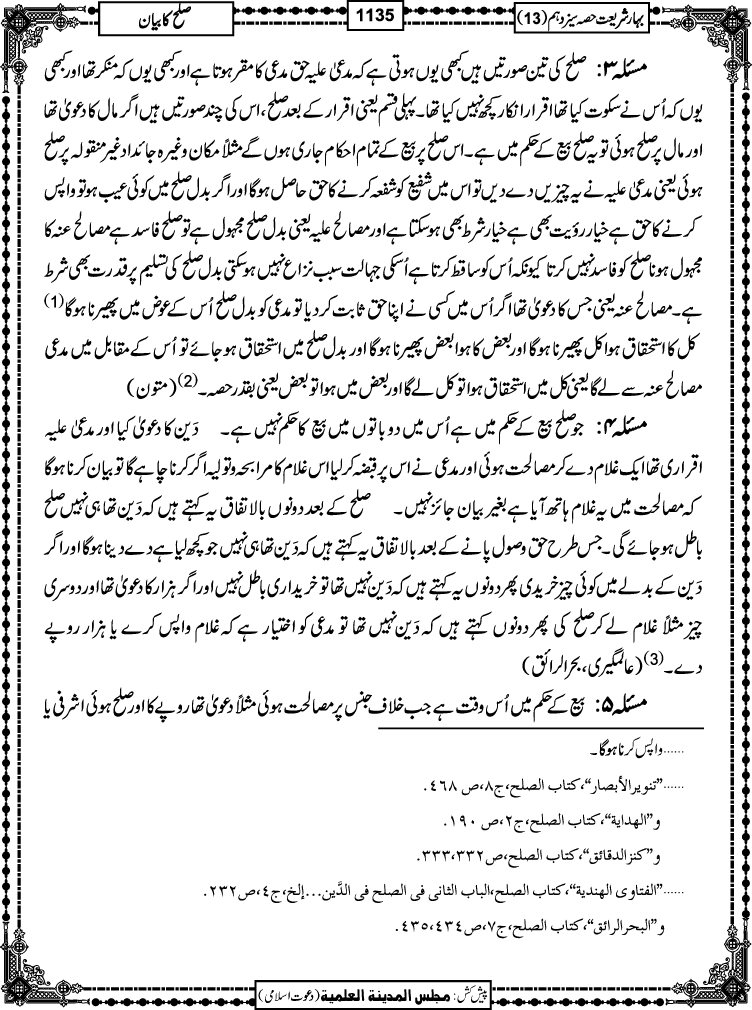 بہار شریعت حصہ سیزدہم (13)
1135
صلح کا بیان
مسئلہ ۳: صلح کی تین صورتیں ہیں کبھی یوں ہوتی ہے کہ مدعیٰ علیہ حق مدعی کا مقر ہوتا ہے اور کبھی یوں کہ منکر تھا اور کبھی
یوں کہ اُس نے سکوت کیا تھا اقرار انکار کچھ نہیں کیا تھا۔ پہلی قسم یعنی اقرار کے بعد صلح، اس کی چند صورتیں ہیں اگر مال کا دعویٰ تھا
اور مال پر صلح ہوئی تو یہ صلح بیع کے حکم میں ہے۔ اس صلح پر بیع کے تمام احکام جاری ہوں گے مثلاً مکان وغیرہ جائداد غیر منقولہ پر صلح
ہوئی یعنی مدعیٰ علیہ نے یہ چیزیں دے دیں تو اس میں شفیع کو شفعہ کرنے کا حق حاصل ہوگا اور اگر بدل صلح میں کوئی عیب ہو تو واپس
کرنے کا حق ہے خیار رؤیت بھی ہے خیار شرط بھی ہو سکتا ہے اور مصالح علیہ یعنی بدل صلح مجہول ہے تو صلح فاسد ہے مصالح عنہ کا
مجہول ہونا صلح کو فاسد نہیں کرتا کیونکہ اُس کو ساقط کرتا ہے اُسکی جہالت سبب نزاع نہیں ہو سکتی بدل صلح کی تسلیم پر قدرت بھی شرط
ہے۔ مصالح عنہ یعنی جس کا دعویٰ تھا اگر اُس میں کسی نے اپنا حق ثابت کر دیا تو مدعی کو بدل صلح اُس کے عوض میں پھیرنا ہوگا (1)
کل کا استحقاق ہوا کل پھیرنا ہوگا اور بعض کا ہوا بعض پھیرنا ہوگا اور بدل صلح میں استحقاق ہو جائے تو اُس کے مقابل میں مدعی
مصالح عنہ سے لے گا یعنی کل میں استحقاق ہوا تو کل لے گا اور بعض میں ہوا تو بعض یعنی بقدر حصہ۔ (2) (متون)
مسئلہ ۴: جو صلح بیع کے حکم میں ہے اُس میں دو باتوں میں بیع کا حکم نہیں ہے۔ دَین کا دعویٰ کیا اور مدعیٰ علیہ
اقراری تھا ایک غلام دے کر مصالحت ہوئی اور مدعی نے اس پر قبضہ کر لیا اس غلام کا مرابحہ و تولیہ اگر کرنا چاہے گا تو بیان کرنا ہوگا
کہ مصالحت میں یہ غلام ہاتھ آیا ہے بغیر بیان جائز نہیں۔ صلح کے بعد دونوں بالاتفاق یہ کہتے ہیں کہ دَین تھا ہی نہیں صلح
باطل ہو جائے گی۔ جس طرح حق وصول پانے کے بعد بالاتفاق یہ کہتے ہیں کہ دَین تھا ہی نہیں جو کچھ لیا ہے دے دینا ہوگا اور اگر
دَین کے بدلے میں کوئی چیز خریدی پھر دونوں یہ کہتے ہیں کہ دَین نہیں تھا تو خریداری باطل نہیں اور اگر ہزار کا دعویٰ تھا اور دوسری
چیز مثلاً غلام لے کر صلح کی پھر دونوں کہتے ہیں کہ دَین نہیں تھا تو مدعی کو اختیار ہے کہ غلام واپس کرے یا ہزار روپے
دے۔ (3) (عالمگیری، بحر الرائق)
مسئلہ ۵: بیع کے حکم میں اُس وقت ہے جب خلاف جنس پر مصالحت ہوئی مثلاً دعویٰ تھا روپے کا اور صلح ہوئی اشرفی یا
......واپس کرنا ہوگا۔
......”تنویر الأبصار“، کتاب الصلح، ج٨، ص ٤٦٨.
و”الھدایة“، کتاب الصلح، ج٢، ص ١٩٠.
و”کنز الدقائق“، کتاب الصلح، ص٣٣٢، ٣٣٣.
......”الفتاوی الھندیة“، کتاب الصلح، الباب الثانی فی الصلح فی الدَّین...إلخ، ج٤، ص٢٣٢.
و”البحر الرائق“، کتاب الصلح، ج٧، ص٤٣٤، ٤٣٥.
پیش کش: مجلس المدینة العلمیة (دعوت اسلامی)